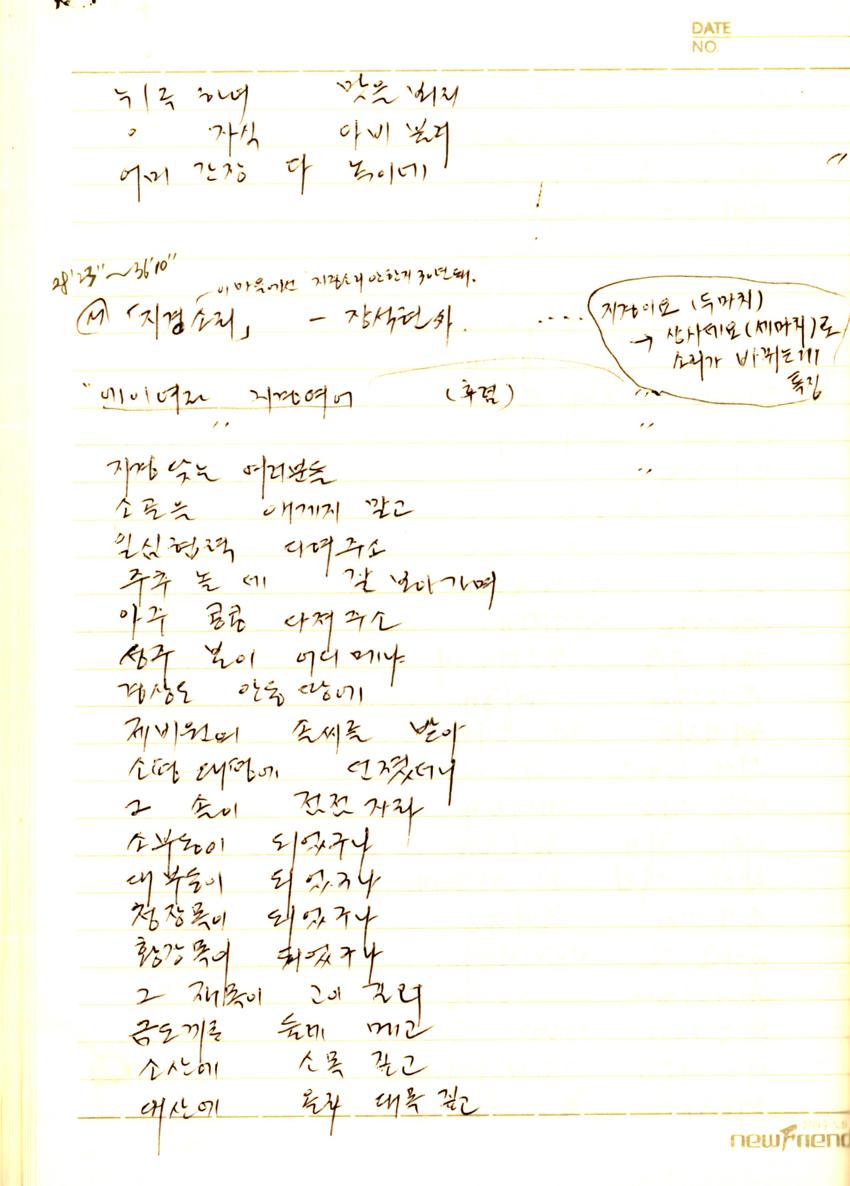 DATE
NO
누구를 하녀 맞을 버리
이 자식 아비 불러
어미 간장 다 녹이네
28'23"~36'10"
이 마을에선 지경소리 안한지 30년 돼.
「지경소리」 - 장석현 外.
지경이요 (두마치)
→ 상사데요 (세마치)로
소리가 바뀌는게
특징
"에이여라 지경여어 (후렴)
지경 닻는 여러분들
소홀을 얘게지 말고
일심협력 다며주소
주추 놀 데 잘 보아가며
아주 콩콩 다져주소
성주 본이 어디메냐
경상도 안동 땅에
제비원의 솔씨를 받아
소평 대평에 던졌더니
그 솔이 점점 자라
소부동이 되었구나
대부동이 되었구나
청장목이 되었구나
황장목이 되었구나
그 재목이 고이 길러
금도끼를 둘러 메고
소산에 소목 깊고
대산에 올라 대목 깊고
newFriend